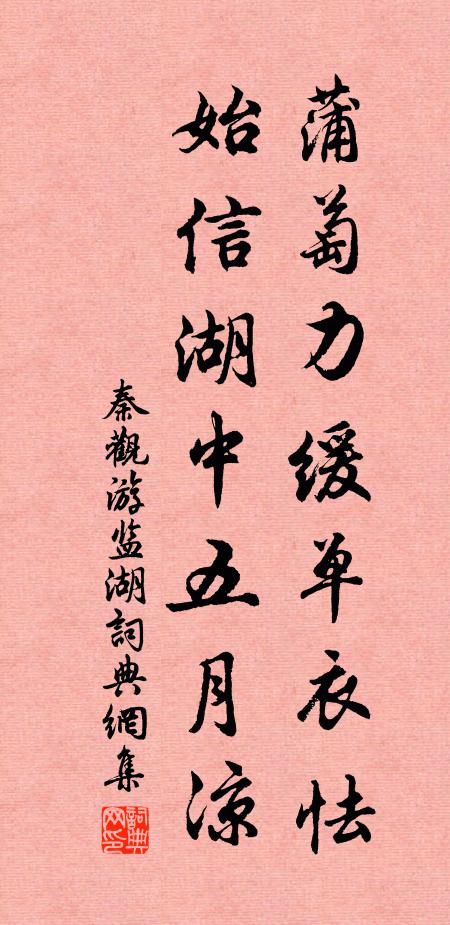 蒲萄力緩单衣怯
始信湖中五月涼
秦觀游监湖詞典網集
詞典网印